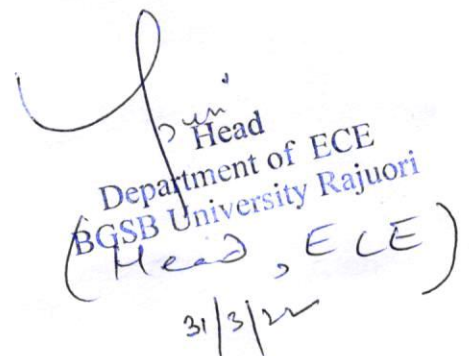 Head
Department of ECE
BGSB University Rajuori
(Head, ECE)
31/3/22